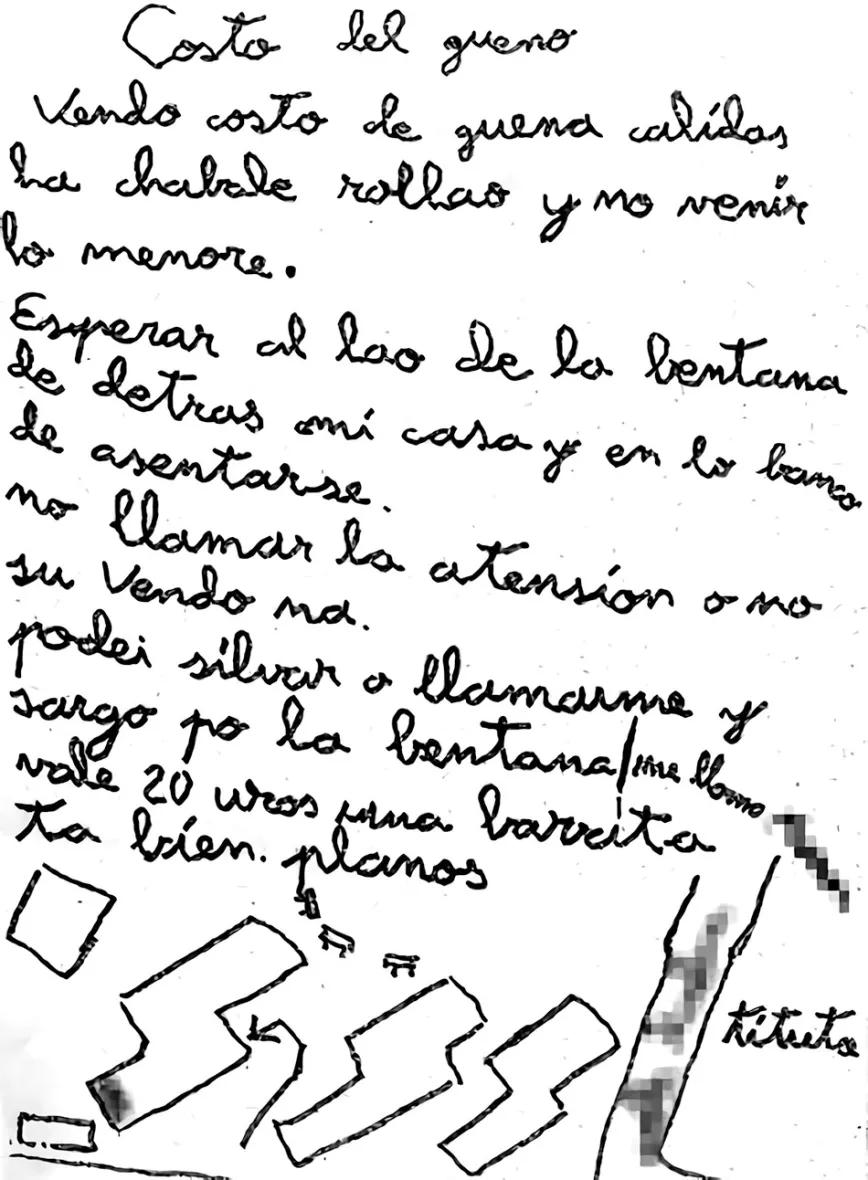 Costo del gueno
Vendo costo de guena calidas
ha chabale rollao y no venir
lo menore.
Esperar al lao de la bentana
de detras mi casa y en lo banco
de asentarse.
no llamar la atensíon o no
su vendo na.
podei silvar o llamarme y
sargo po la bentana/me llamo
vale 20 uros una barrita
ta bíen. planos
títuto